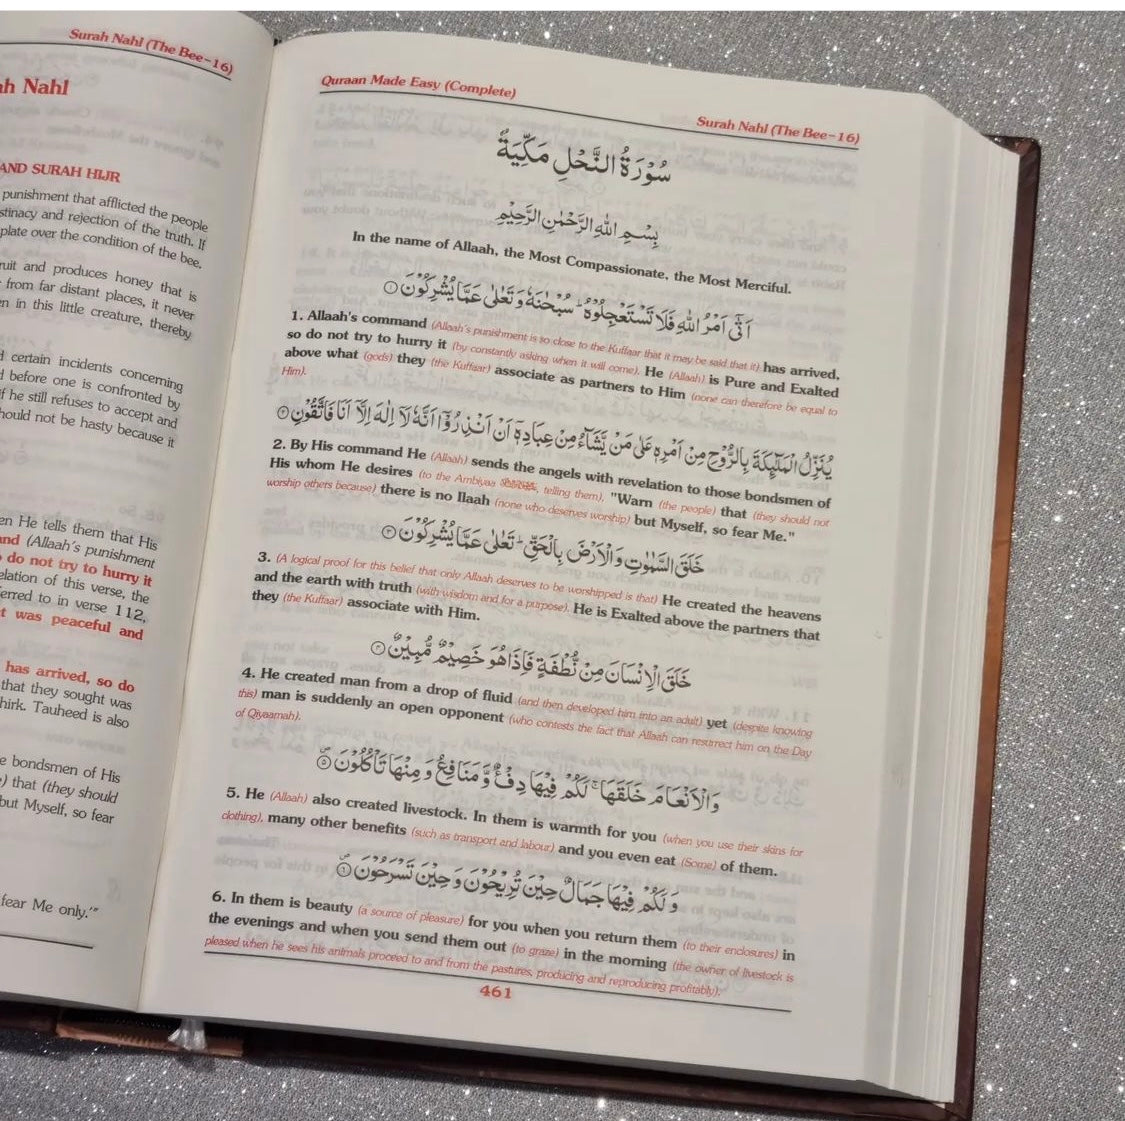 Surah Nahl (The Bee-16)
ah Nahl
AND SURAH HIJR
punishment that afflicted the people
stinacy and rejection of the truth. If
plate over the condition of the bee.
ruit and produces honey that is
from far distant places, it never
en in this little creature, thereby
d certain incidents concerning
d before one is confronted by
if he still refuses to accept and
hould not be hasty because it
en He tells them that His
and (Allaah's punishment
do not try to hurry it
elation of this verse, the
erred to in verse 112,
t was peaceful and
has arrived, so do
that they sought was
hirk. Tauheed is also
e bondsmen of His
) that (they should
but Myself, so fear
fear Me only.'"
Quraan Made Easy (Complete)
Surah Nahl (The Bee-16)
سُوْرَةُ النَّحْلِ مَكِّيَةٌ
بِسْمِ اللّٰهِ الرَّحْمٰنِ الرَّحِيْمِ
In the name of Allaah, the Most Compassionate, the Most Merciful.
اَتٰۤى اَمْرُ اللّٰهِ فَلَا تَسْتَعْجِلُوْهُ ؕ سُبْحٰنَهٗ وَتَعٰلٰى عَمَّا يُشْرِكُوْنَ ۝۱
1. Allaah's command (Allaah's punishment is so close to the Kuffaar that it may be said that it) has arrived,
so do not try to hurry it (by constantly asking when it will come). He (Allaah) is Pure and Exalted
above what (gods) they (the Kuffaar) associate as partners to Him (none can therefore be equal to
Him).
يُنَزِّلُ الْمَلٰٓئِكَةَ بِالرُّوْحِ مِنْ اَمْرِهٖ عَلٰى مَنْ يَّشَآءُ مِنْ عِبَادِهٖۤ اَنْ اَنْذِرُوْۤا اَنَّهٗ لَاۤ اِلٰهَ اِلَّاۤ اَنَا فَاتَّقُوْنِ ۝۲
2. By His command He (Allaah) sends the angels with revelation to those bondsmen of
His whom He desires (to the Ambiyaa telling them), "Warn (the people) that (they should not
worship others because) there is no Ilaah (none who deserves worship) but Myself, so fear Me."
خَلَقَ السَّمٰوٰتِ وَالْاَرْضَ بِالْحَقِّ ؕ تَعٰلٰى عَمَّا يُشْرِكُوْنَ ۝۳
3. (A logical proof for this belief that only Allaah deserves to be worshipped is that) He created the heavens
and the earth with truth (with wisdom and for a purpose). He is Exalted above the partners that
they (the Kuffaar) associate with Him.
خَلَقَ الْاِنْسَانَ مِنْ نُّطْفَةٍ فَاِذَا هُوَ خَصِيْمٌ مُّبِيْنٌ ۝۴
4. He created man from a drop of fluid (and then developed him into an adult) yet (despite knowing
this) man is suddenly an open opponent (who contests the fact that Allaah can resurrect him on the Day
of Qiyaamah).
وَالْاَنْعَامَ خَلَقَهَا ۚ لَكُمْ فِيْهَا دِفْءٌ وَّمَنَافِعُ وَمِنْهَا تَاْكُلُوْنَ ۝۵
5. He (Allaah) also created livestock. In them is warmth for you (when you use their skins for
clothing), many other benefits (such as transport and labour) and you even eat (Some) of them.
وَلَكُمْ فِيْهَا جَمَالٌ حِيْنَ تُرِيْحُوْنَ وَحِيْنَ تَسْرَحُوْنَ ۝۶
6. In them is beauty (a source of pleasure) for you when you return them (to their enclosures) in
the evenings and when you send them out (to graze) in the morning (the owner of livestock is
pleased when he sees his animals proceed to and from the pastures, producing and reproducing profitably).
461